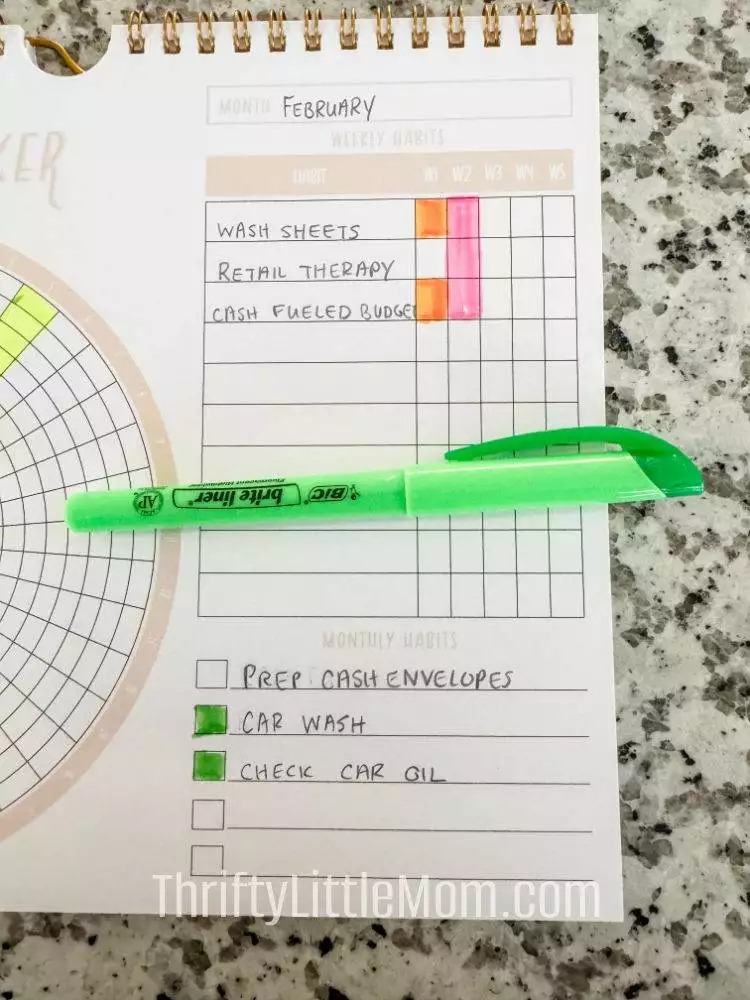 KER
MONTH FEBRUARY
WEEKLY HABITS
HABIT W1 W2 W3 W4 W5
WASH SHEETS
RETAIL THERAPY
CASH FUELED BUDGET
BIC brite liner
Fluorescent Highlighter
AP
MONTHLY HABITS
PREP CASH ENVELOPES
CAR WASH
CHECK CAR OIL
ThriftyLittleMom.com